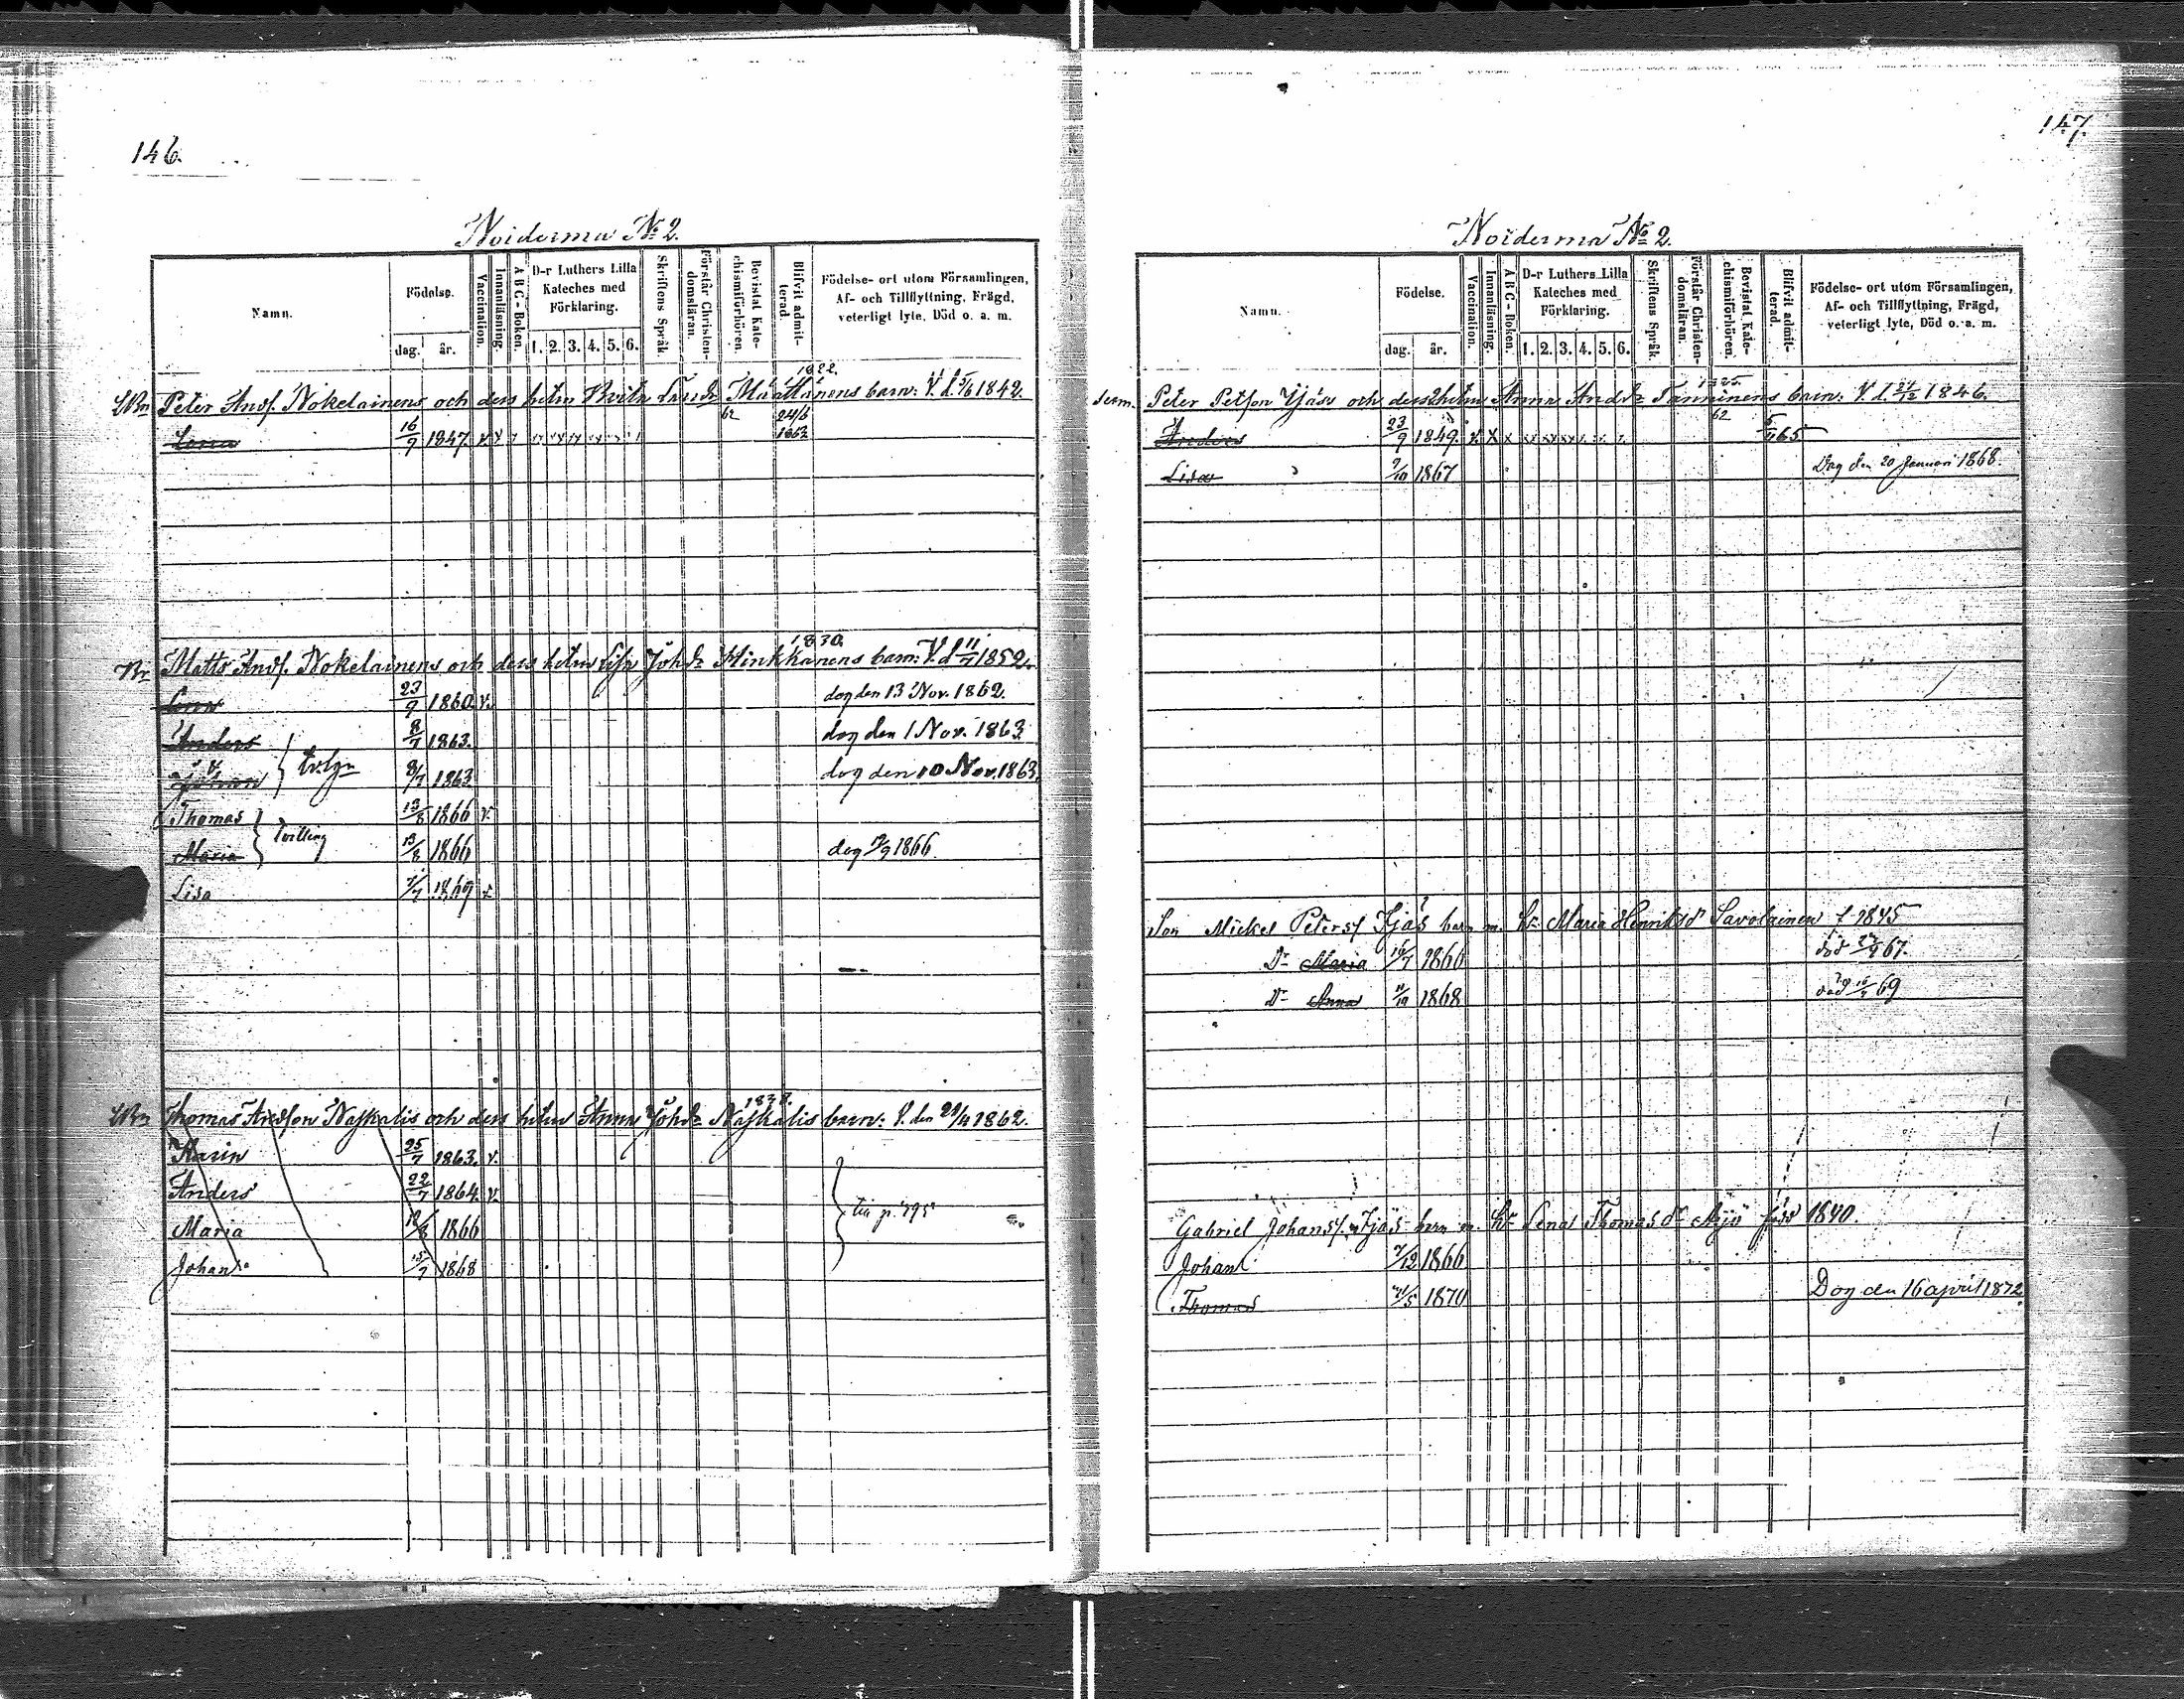 146.
Noiderma № 2.
Namn.
Födelse.
dag.
år.
Vaccination.
Innanläsning.
A B C - Boken.
D-r Luthers Lilla Kateches med Förklaring.
1. 2. 3. 4. 5. 6.
Skriftens Språk.
Förstår Christendomsläran.
Bevistat Katechismiförhören.
Blifvit admitterad.
Födelse- ort utom Församlingen,
Af- och Tillflyttning, Frägd,
veterligt lyte, Död o. a. m.
1822.
Peter Andf. Nokelainens och dess hustru barn: V. d. 1842.
Lena 16/9 1847 v x 62 24/6 1863
1830.
Matts Andf. Nokelainens och dess Joh.dr Hinkkanens barn: V. d 11/7 1852.
Lena 23/9 1860 v. dog den 13 Nov. 1862.
Anders 8/7 1863. dog den 1 Nov. 1863
Johan 8/7 1863 dog den 10 Nov. 1863.
Thomas 13/8 1866 v.
Maria Tvilling 13/8 1866 dog 1866
Lisa 1869 v
Thomas Andfon Naskalis och dess Anna Joh.dr Naskalis barn: V. den 1862.
Karin 25/7 1863. v.
Anders 22/7 1864. v.
Maria 1866
Johan 15/7 1868
147.
Noiderma № 2.
Namn.
Födelse.
dag.
år.
Vaccination.
Innanläsning.
A B C - Boken.
D-r Luthers Lilla Kateches med Förklaring.
1. 2. 3. 4. 5. 6.
Skriftens Språk.
Förstår Christendomsläran.
Bevistat Katechismiförhören.
Blifvit admitterad.
Födelse- ort utom Församlingen,
Af- och Tillflyttning, Frägd,
veterligt lyte, Död o. a. m.
1825.
Peter Petfon och dess Anna And.dr Tanninens barn: V. d. 1846.
Anders 23/9 1849. v. x x 62 65
Lisa 7/10 1867 Dog den 20 Januari 1868.
Son Mickel Petersf barn m. Maria Henriksdr Savolainen f. 1845
Dr Maria 16/7 1866 död 67.
Dr Anna 1868 död 69
Gabriel Johansf. barn m. Lena Thomasdr född 1840.
Johan 7/12 1866
Thomas 21/5 1870 Dog den 16 april 1872